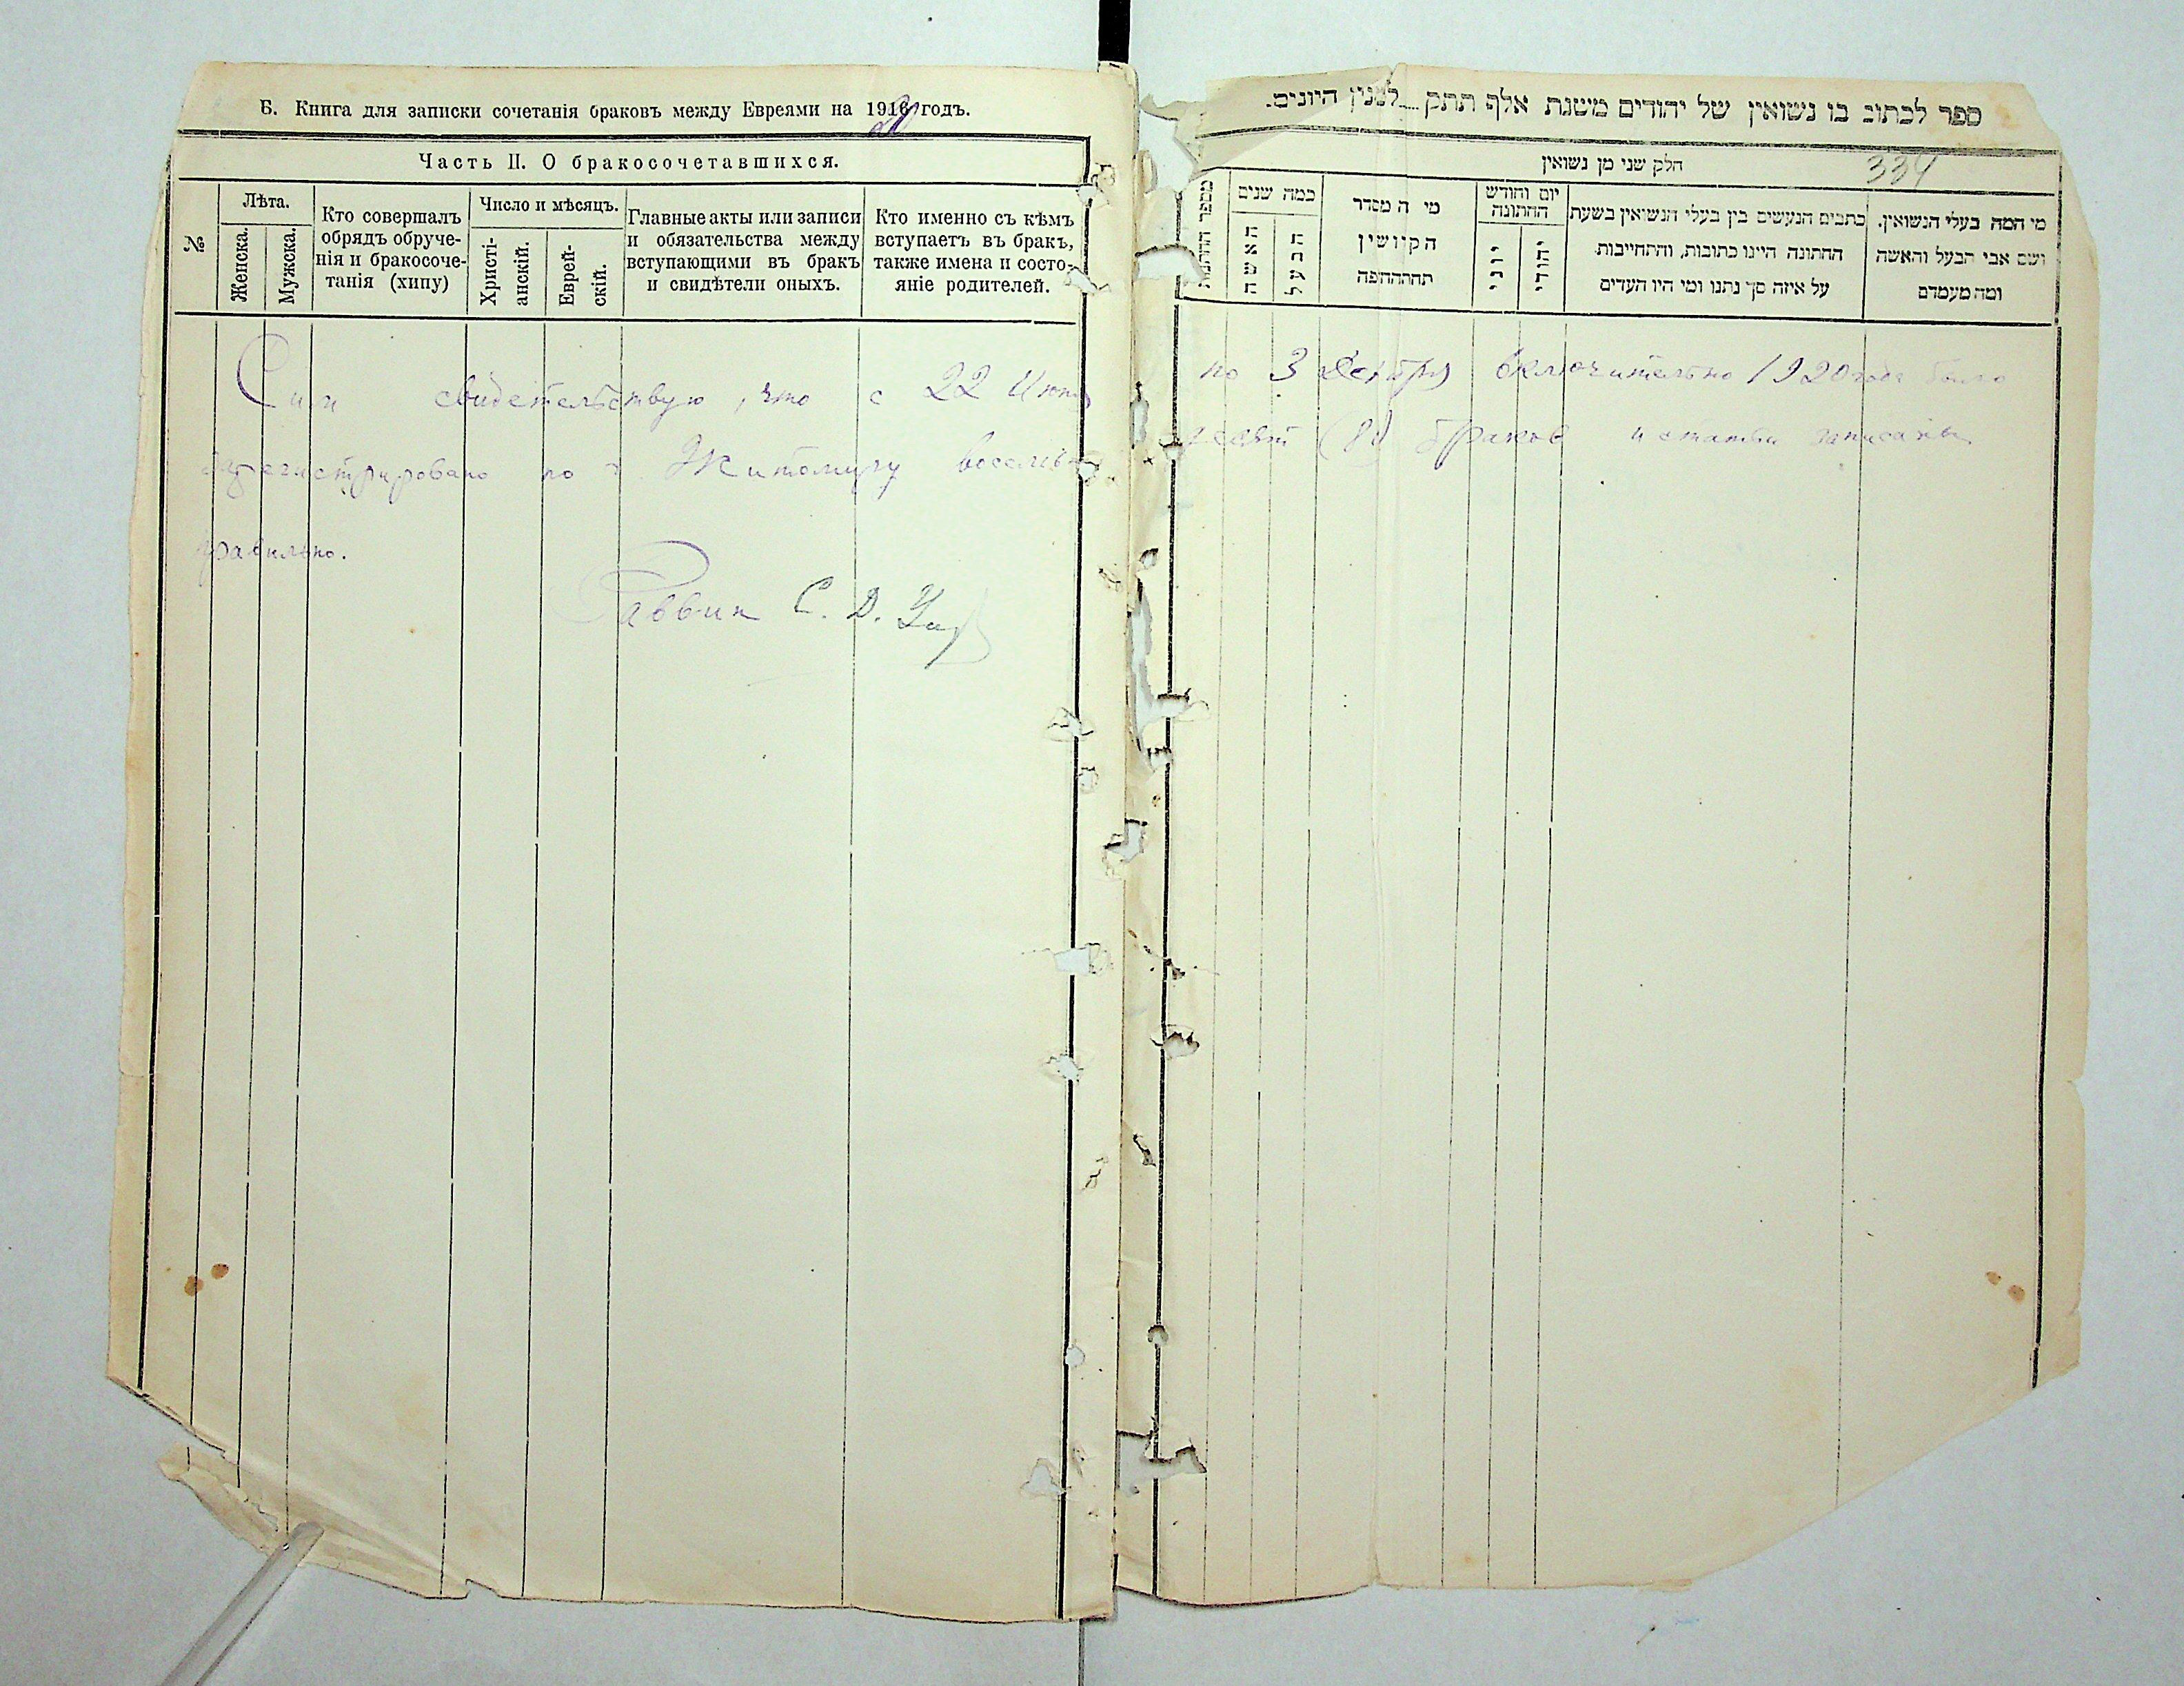 Б. Книга для записки сочетанія браковъ между Евреями на 1920 годъ.
Часть II. О бракосочетавшихся.
№
Лѣта.
Женска.
Мужска.
Кто совершалъ
обрядъ обруче-
нія и бракосоче-
танія (хипу)
Число и мѣсяцъ.
Христі-
анскій.
Еврей-
скій.
Главные акты или записи
и обязательства между
вступающими въ бракъ
и свидѣтели оныхъ.
Кто именно съ кѣмъ
вступаетъ въ бракъ,
также имена и состо-
яніе родителей.
Сим свидетельствую, что с 22 Июня
зарегистрировано по г. Житомиру восемьд
правильно.
Раввин С. Д.
ספר לכתוב בו נשואין של יהודים משנת אלף תתק למנין היונים.
334
חלק שני מן נשואין
מספר החתנות
כמה שנים
האשה
הבעל
מי המסדר
הקיושין
תחההחפה
יום וחודש
החתונה
יוני
יהודי
כתבים הנעשים בין בעלי הנשואין בשעת
החתונה היינו כתובות, והתחייבות
על איזה סך נתנו ומי היו העדים
מי המה בעלי הנשואין.
ושם אבי הבעל והאשה
ומה מעמדם
по 3 включительно 1920 года было
браков и статьи записаны